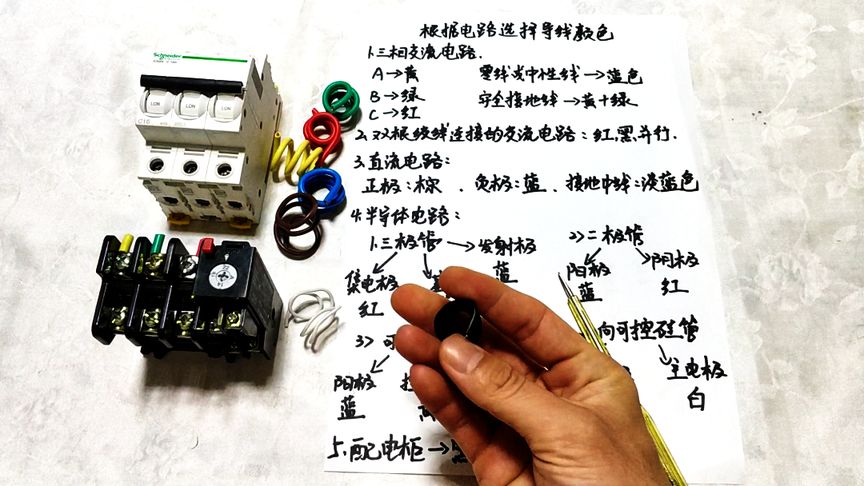 Schneider
C16
根据电路选择导线颜色
1.三相交流电路.
A→黄 零线或中性线→蓝色
B→绿 安全接地线→黄+绿
C→红
2.双根绞线连接的交流电路:红,黑并行.
3.直流电路:
正极:棕、负极:蓝、接地中线:淡蓝色
4.半导体电路:
1.三极管→发射极 2>二极管
蓝 阳极 阴极
集电极 蓝 红
红
3> 可 向可控硅管
阳极 主电极
蓝 白
5.配电柜→